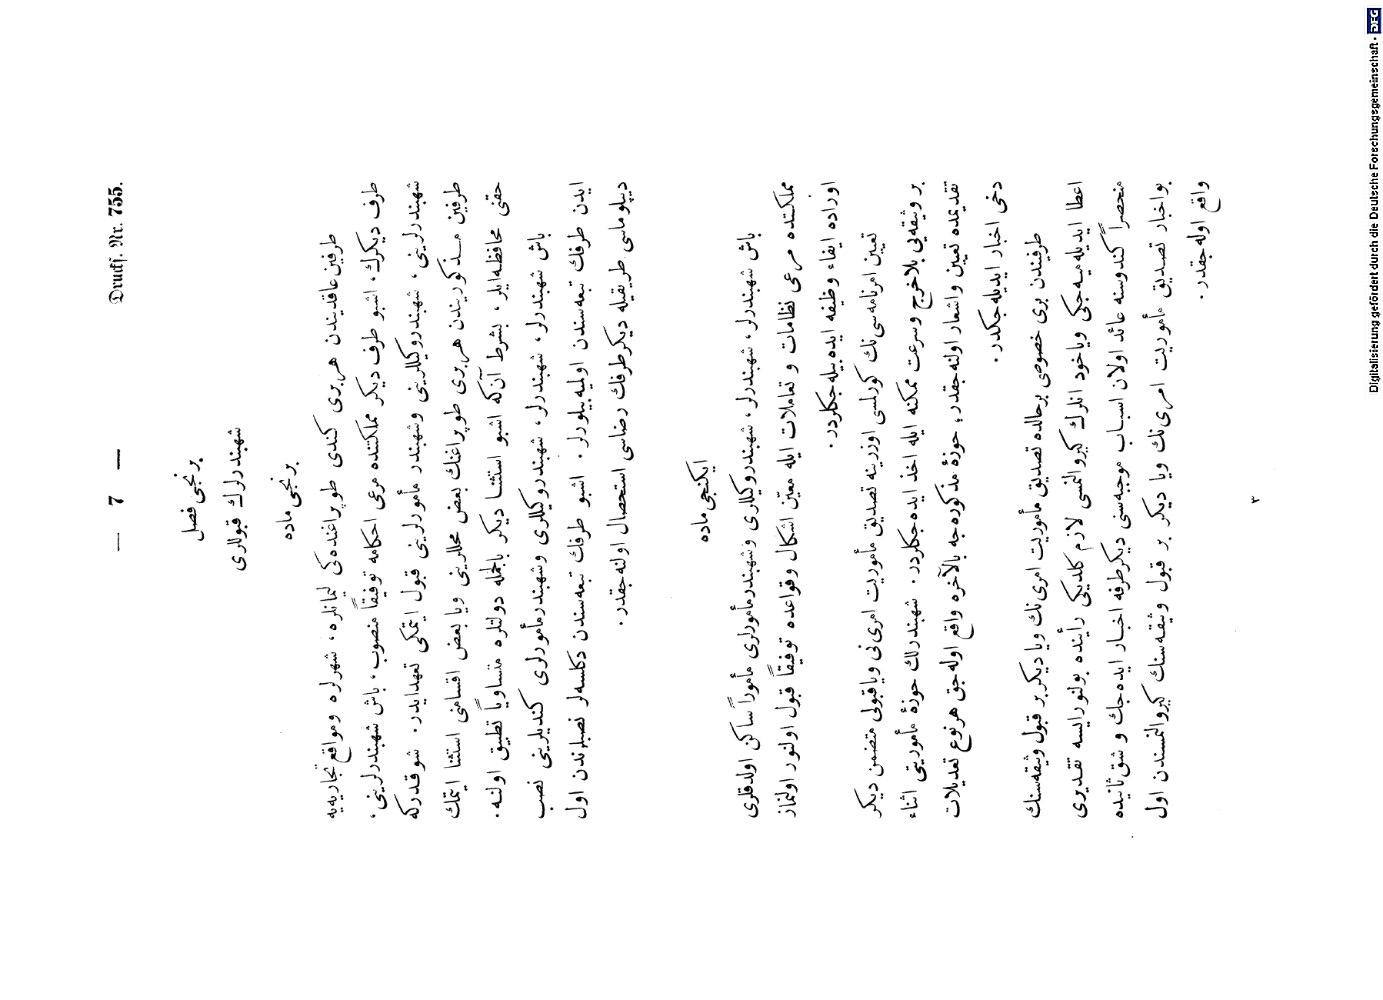 — 7 —
Drucks. Nr. 755.
برنجی فصل
شهبندرلرك قبوللری
برنجی ماده
طرفین عاقدیندن هر بری كندی طوپراغنده كی لیمانلره، شهرلره ومواقع تجاریه یه
طرف دیكرك، اشبو طرف دیكر مملكتنده مرعی احكامه توفیقاً منصوب، باش شهبندرلرینی،
شهبندرلرینی، شهبندر وكیللرینی وشهبندر مأمورلرینی قبول ایتمكی تعهد ایدر. شو قدركه
طرفین مذكوریندن هر بری طوپراغنك بعض محللرینی ویا بعض اقسامنی استثنا ایتمك
حقنی محافظه ایلر، بشرط آن كه اشبو استثنا دیكر بالجمله دولتلره متساویاً تطبیق اولنه.
باش شهبندرلر، شهبندرلر، شهبندر وكیللری وشهبندر مأمورلری كندیلرینی نصب
ایدن طرفك تبعه سندن اولمیه بیلورلر. اشبو طرفك تبعه سندن دكلسه لر نصبلرندن اول
دیپلوماسی طریقیله دیكر طرفك رضاسی استحصال اولنه جقدر.
ایكنجی ماده
باش شهبندرلر، شهبندرلر، شهبندر وكیللری وشهبندر مأمورلری مأموراً ساكن اولدقلری
مملكتده مرعی نظامات و تعاملات ایله معین اشكال وقواعده توفیقاً قبول اولنور اولنماز
اوراده ایفاء وظیفه ایده بیله جكلردر.
تعیین امرنامه سی نك كورلسی اوزرینه تصدیق مأموریت امری نی ویا قبولی متضمن دیكر
بر وثیقه یی بلا خرج وسرعت ممكنه ایله اخذ ایده جكلردر. شهبندرلك حوزۀ مأموریتی اثناء
تقدیمده تعیین واشعار اولنه جقدر؛ حوزۀ مذكوره جه بالآخره واقع اوله جق هر نوع تعدیلات
دخی اخبار ایدیله جكدر.
طرفیندن بری خصوصی بر حالده تصدیق مأموریت امری نك ویا دیكر بر قبول وثیقه سنك
اعطا ایدیله میه جكی ویاخود انلرك كیرو النمسی لازم كلدیكی رأینده بولنور ایسه تقدیری
منحصراً كندوسنه عائد اولان اسباب موجبه سنی دیكر طرفه اخبار ایده جك و شق ثانیده
بو اخبار تصدیق مأموریت امری نك ویا دیكر بر قبول وثیقه سنك كیرو النمسندن اول
واقع اوله جقدر.
٣
Digitalisierung gefördert durch die Deutsche Forschungsgemeinschaft · DFG